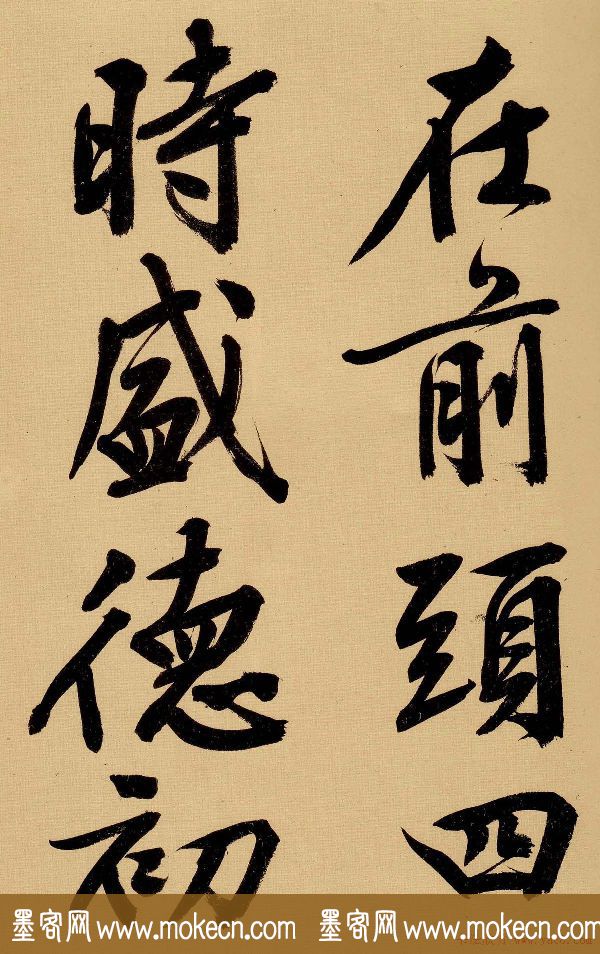 在前頭四
時盛德初
墨客网 www.mokecn.com 墨客网 www.mokecn.com